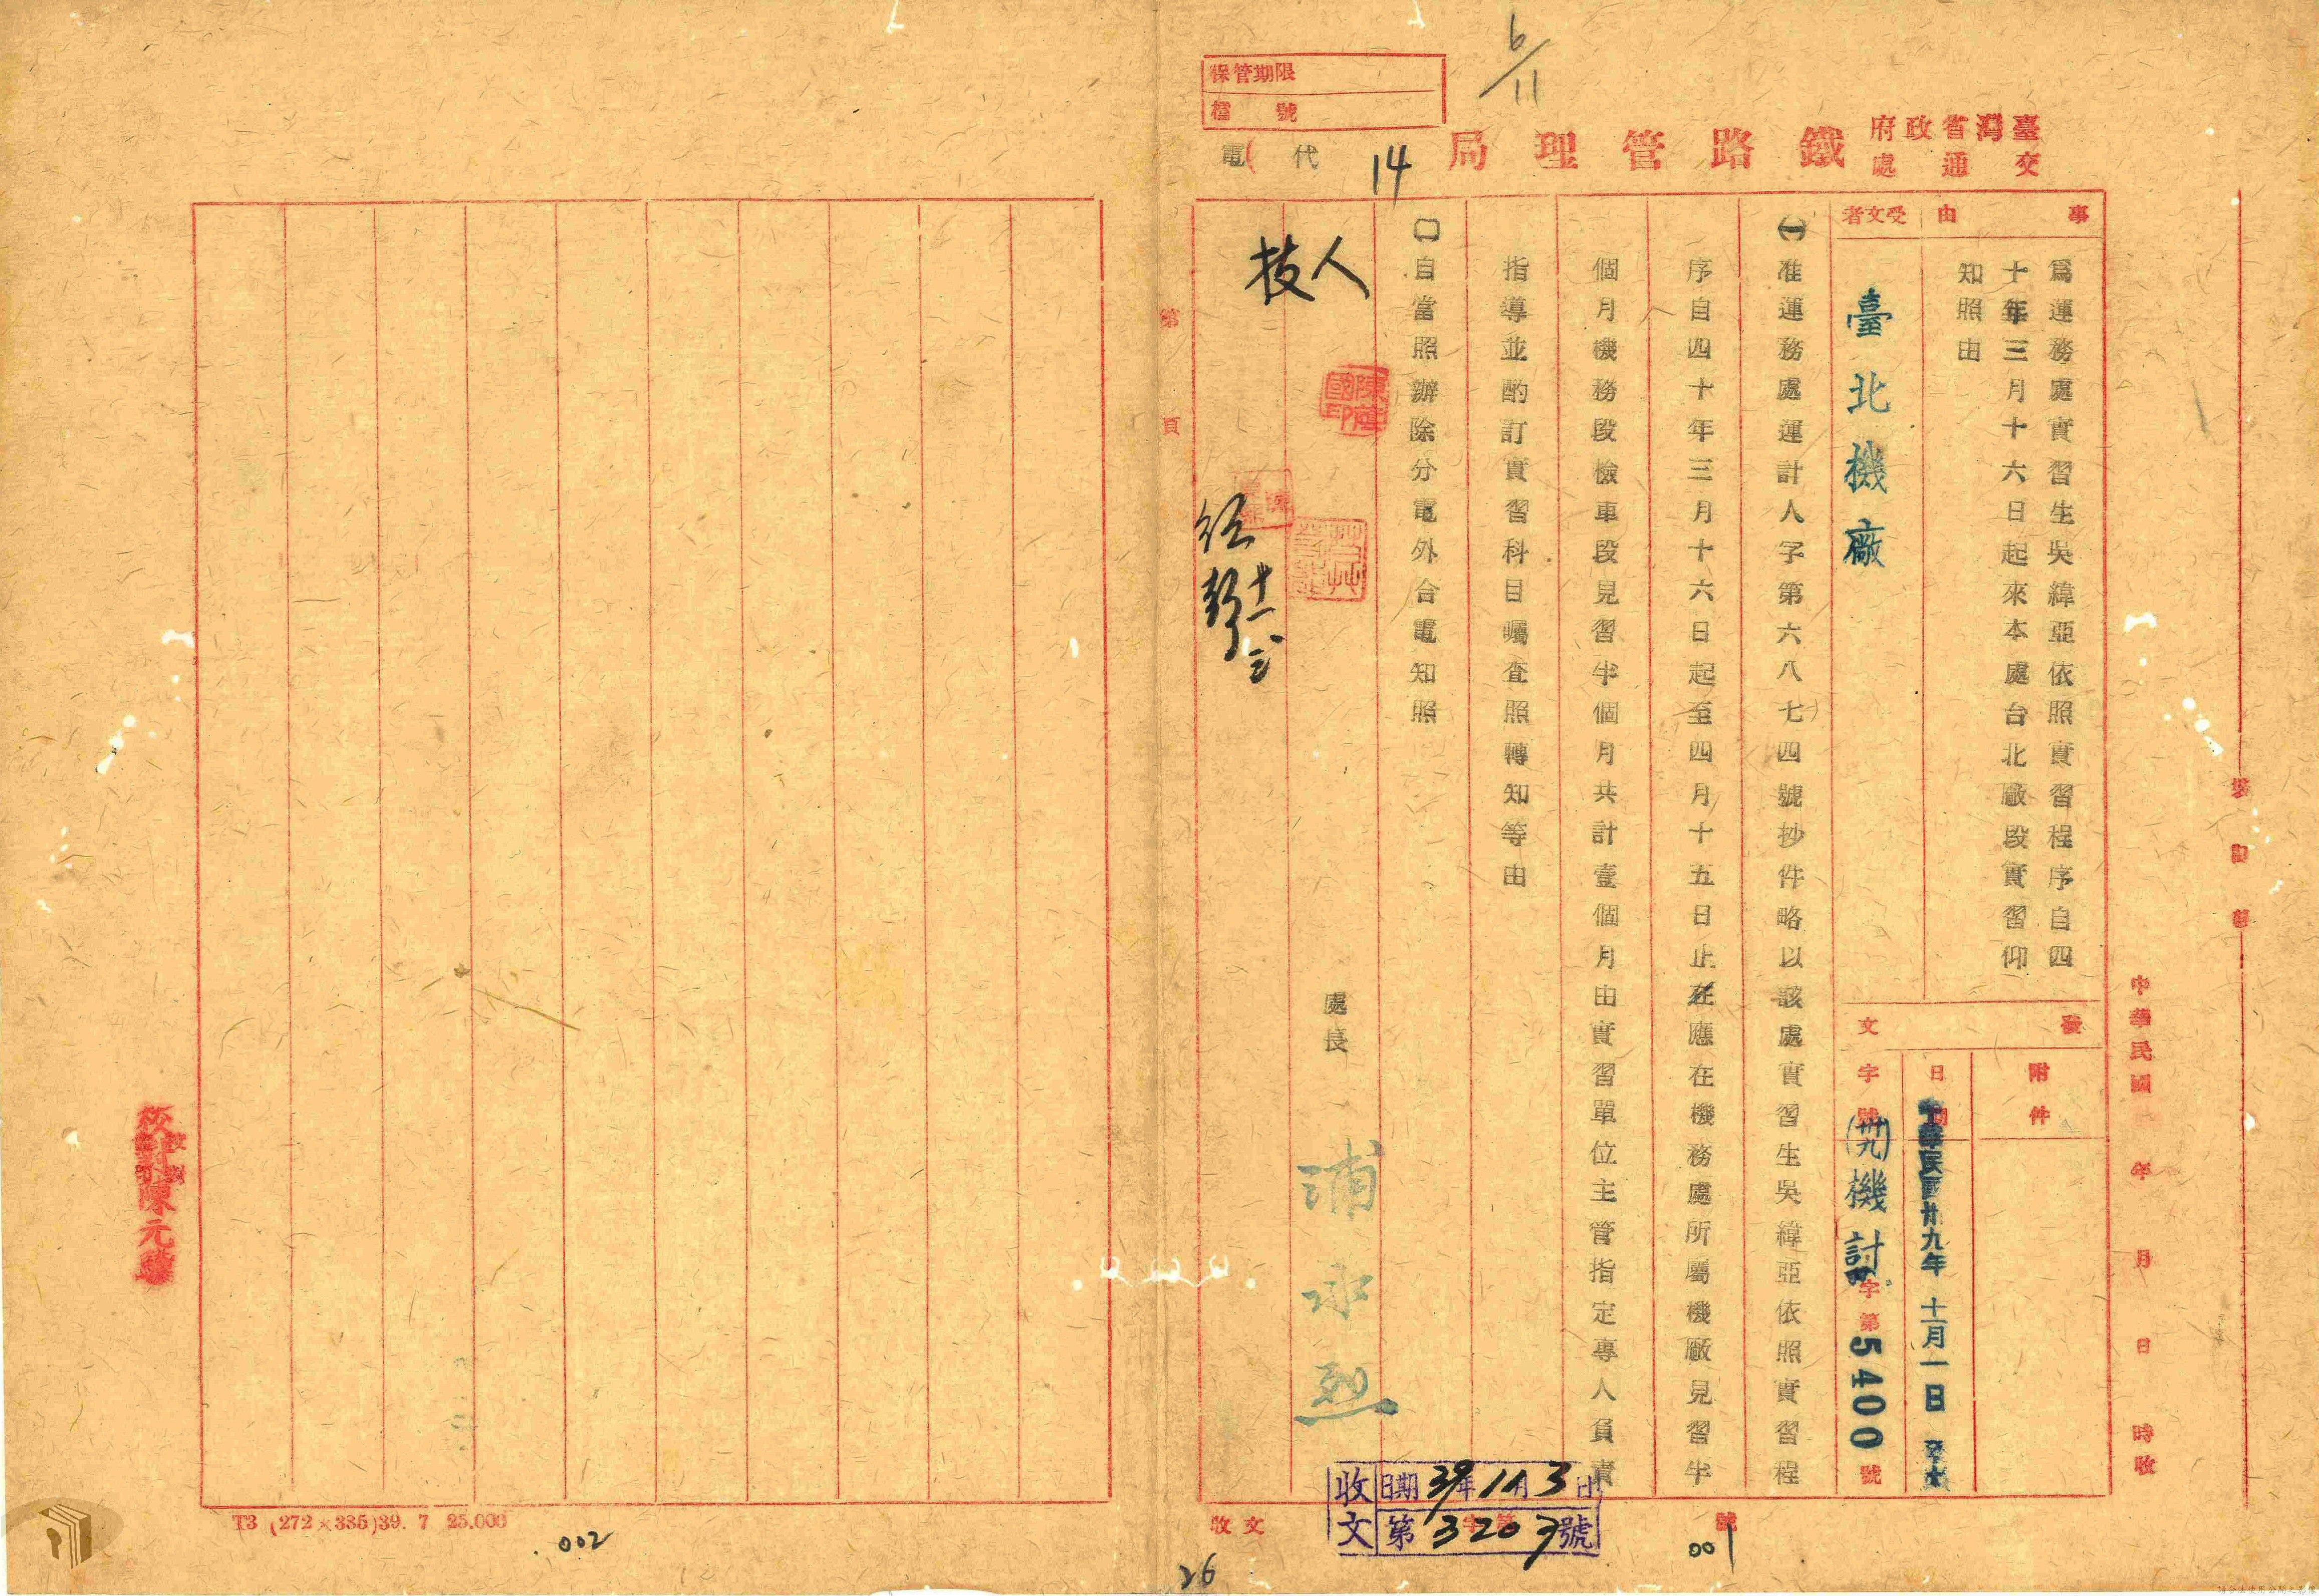 6/11
保管期限
檔號
臺灣省政府
交通處
鐵路管理局
14
代電
事由
為運務處實習生吳緯亞依照實習程序自四
十年三月十六日起來本處台北廠段實習仰
知照由
受文者
臺北機廠
附件
發文
日期
中華民國卅九年十一月一日
字號
(卅九)機討字第5400號
㈠准運務處運計人字第六八七四號抄件略以該處實習生吳緯亞依照實習程
序自四十年三月十六日起至四月十五日止在應在機務處所屬機廠見習半
個月機務段檢車段見習半個月共計壹個月由實習單位主管指定專人負責
指導並酌訂實習科目囑查照轉知等由
㈡自當照辦除分電外合電知照
處長
浦永烈
人
技
十一
三
第頁
中華民國年月日時收
收文
號
收文
日期39年11月3日
字第3207號
001
26
校對陳元
T3 (272×385)39. 7 25.000
002